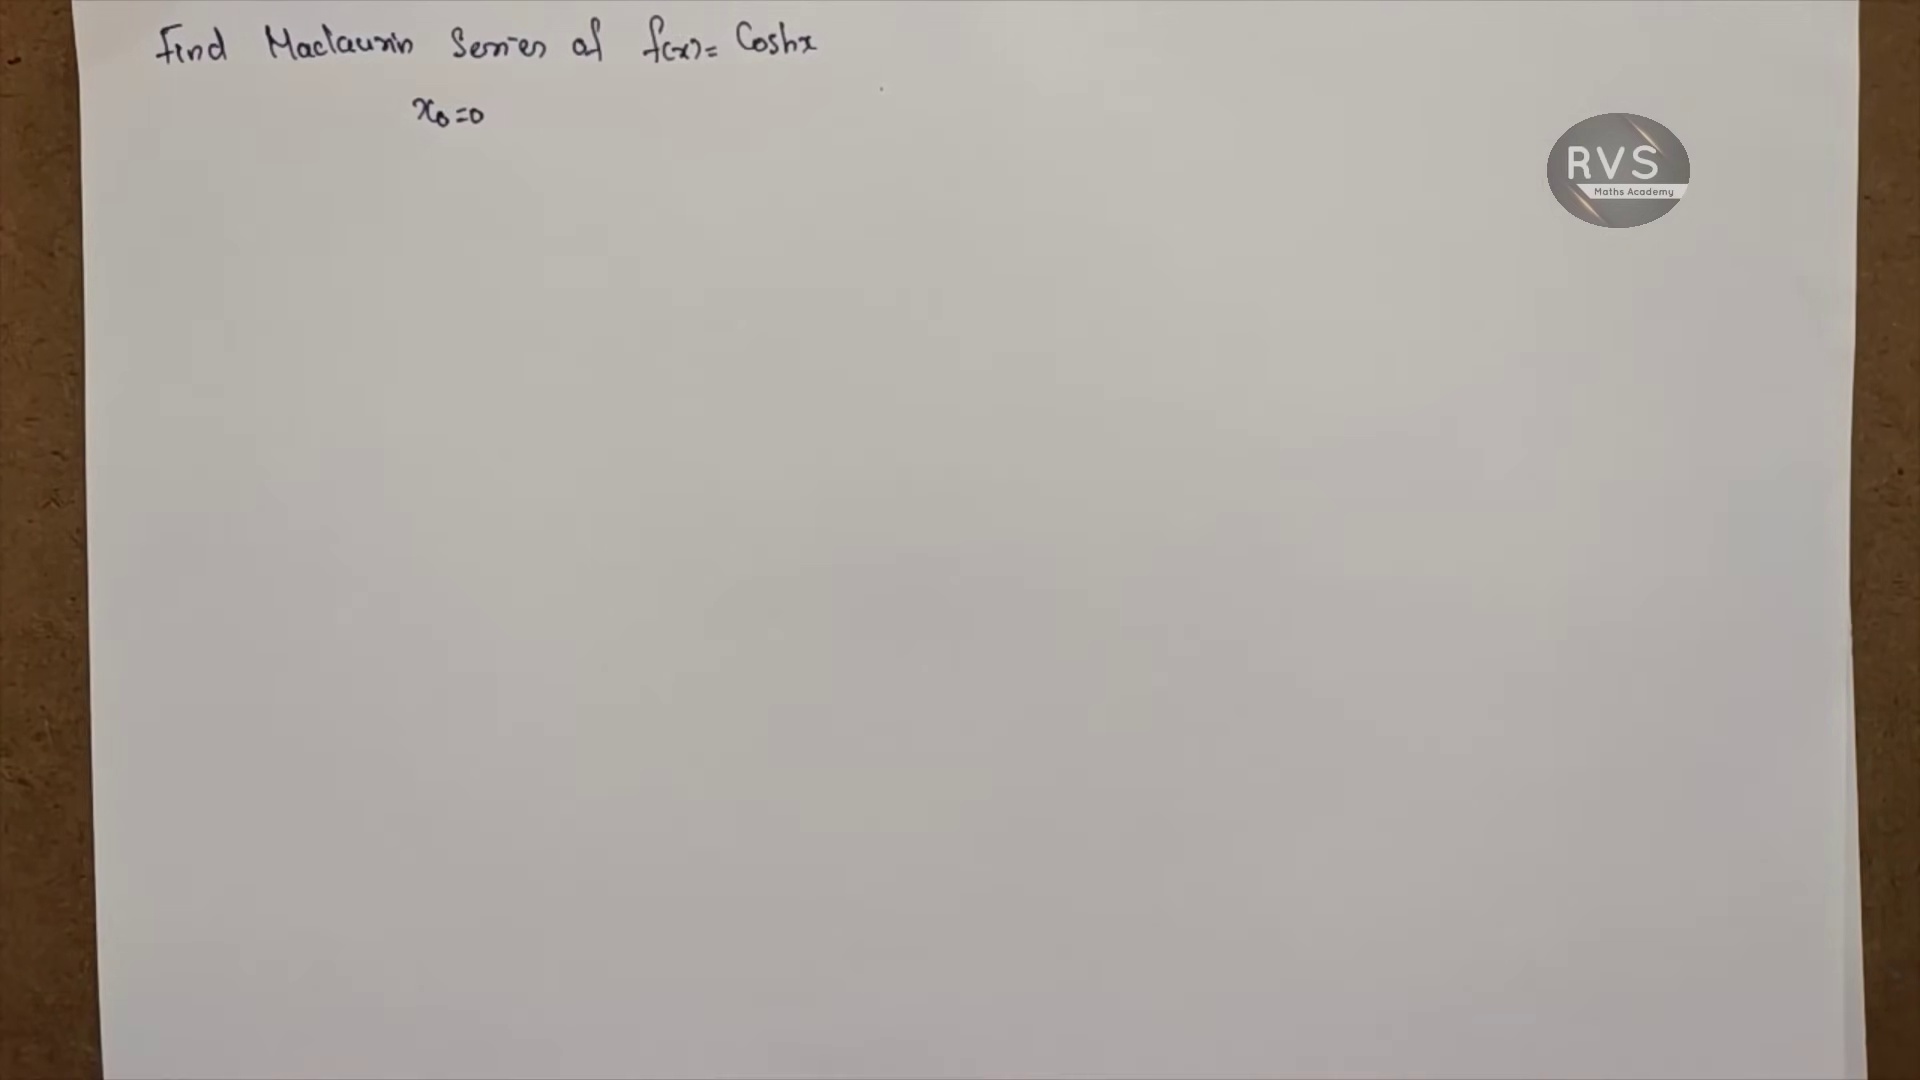 Find Maclaurin Series of f(x)= Coshx
x₀=0
RVS
Maths Academy